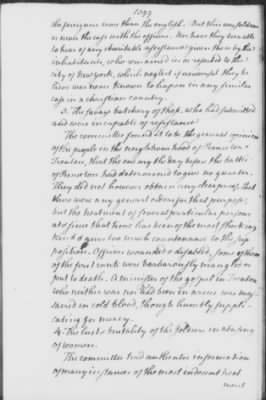 the foreigners more than the english. But this was seldom
or never the case with the officers. Nor have they been able
to hear of any charitable assistance given them by the
inhabitants, who remained in or resorted to the
city of New york, which neglect if universal they be
lieve was never known to happen in any similar
case in a christian country.
3. The savage butchery of those, who had submitted
and were incapable of resistance.
The committee found it to be the general opinion
of the people in the neighbourhood of Princeton &
Trenton, that the enemy the day before the battle
of Princeton had determined to give no quarter.
They did not however obtain any clear proof that
there were any general orders for that purpose,
but the treatment of several particular persons
at & since that time has been of the most shocking
kind & gives too much countenance to the sup
position. Officers wounded & disabled, some of them
of the first rank were barbarously mangled or
put to death. A minister of the gospel in Trenton
who neither was nor had been in arms was mas-
sacred in cold blood, though humbly suppli-
cating for mercy.
4. The lust & brutality of the soldiers in abusing
of women.
The committee had authentic information
of many instances of the most indecent treat
ment